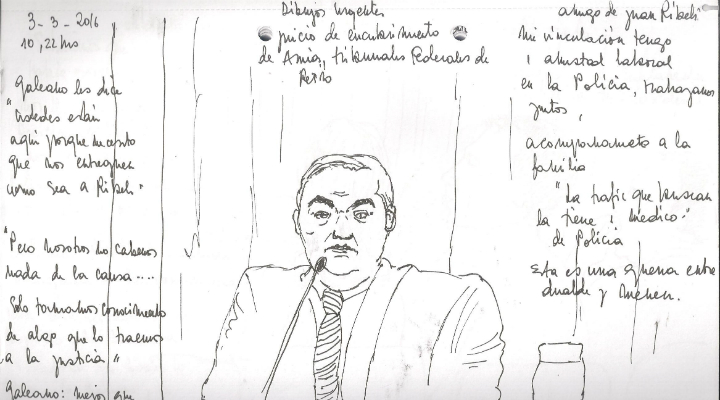 3-3-2016
10,22 hs
Galeano les dice
"Ustedes están
aquí porque necesito
que nos entreguen
como sea a Ribelli"
"Pero nosotros no sabemos
nada de la causa....
Solo tomamos conocimiento
de algo que lo traemos
a la justicia"
Galeano: mejor que
Dibujos urgentes
juicio de encubrimiento
de Amia, tribunales Federales de
Retiro
amigo de Juan Ribelli
Mi vinculación tengo
1 amistad laboral
en la Policía, trabajamos
juntos,
a la
familia
"La trafic que buscan
la tiene 1 médico."
de Policía
Esta es una guerra entre
dualde y Menem.